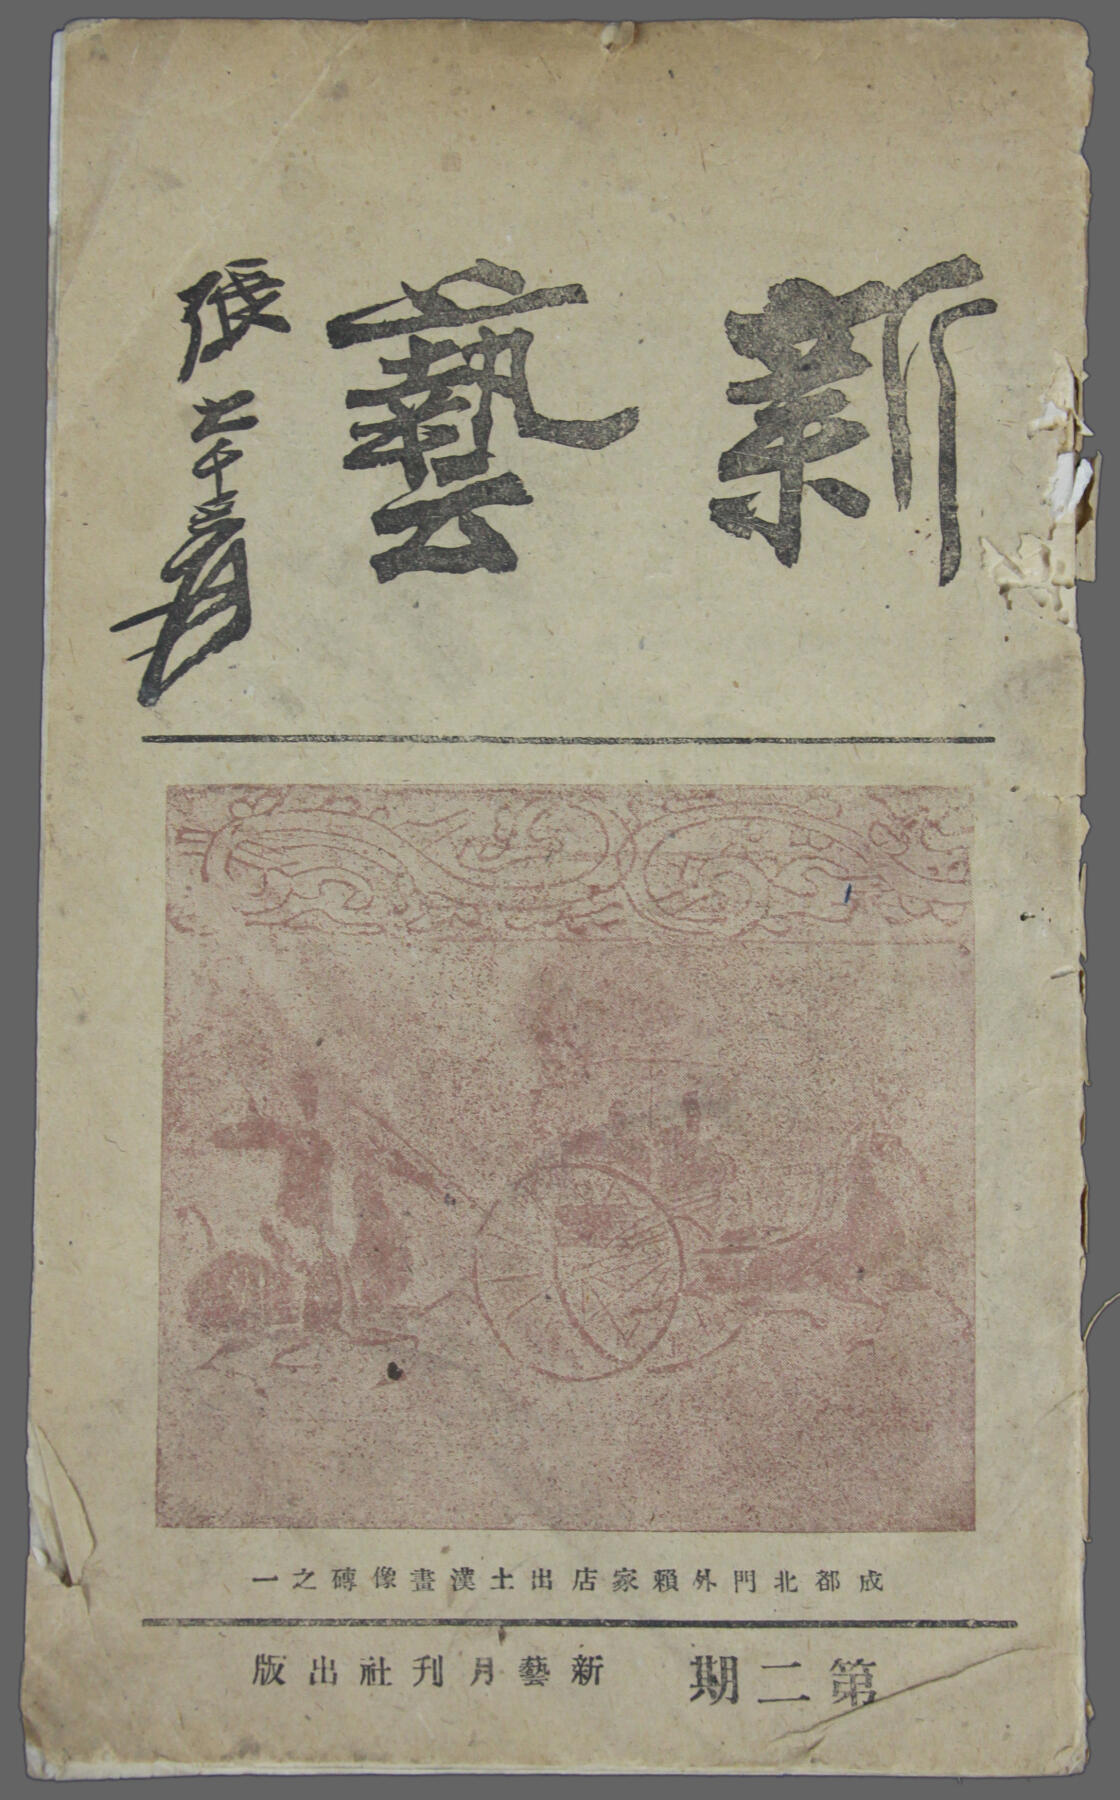 新藝
張大千爰
成都北門外賴家店出土漢畫像磚之一
第二期 新藝月刊社出版